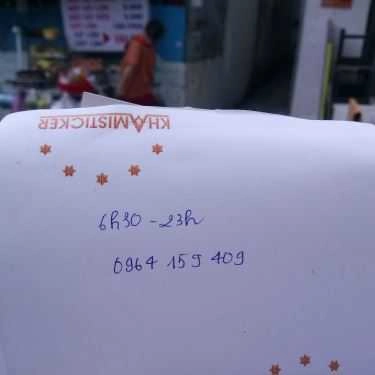 KHAMISTICKER
6h30 - 23h
0964 159 409